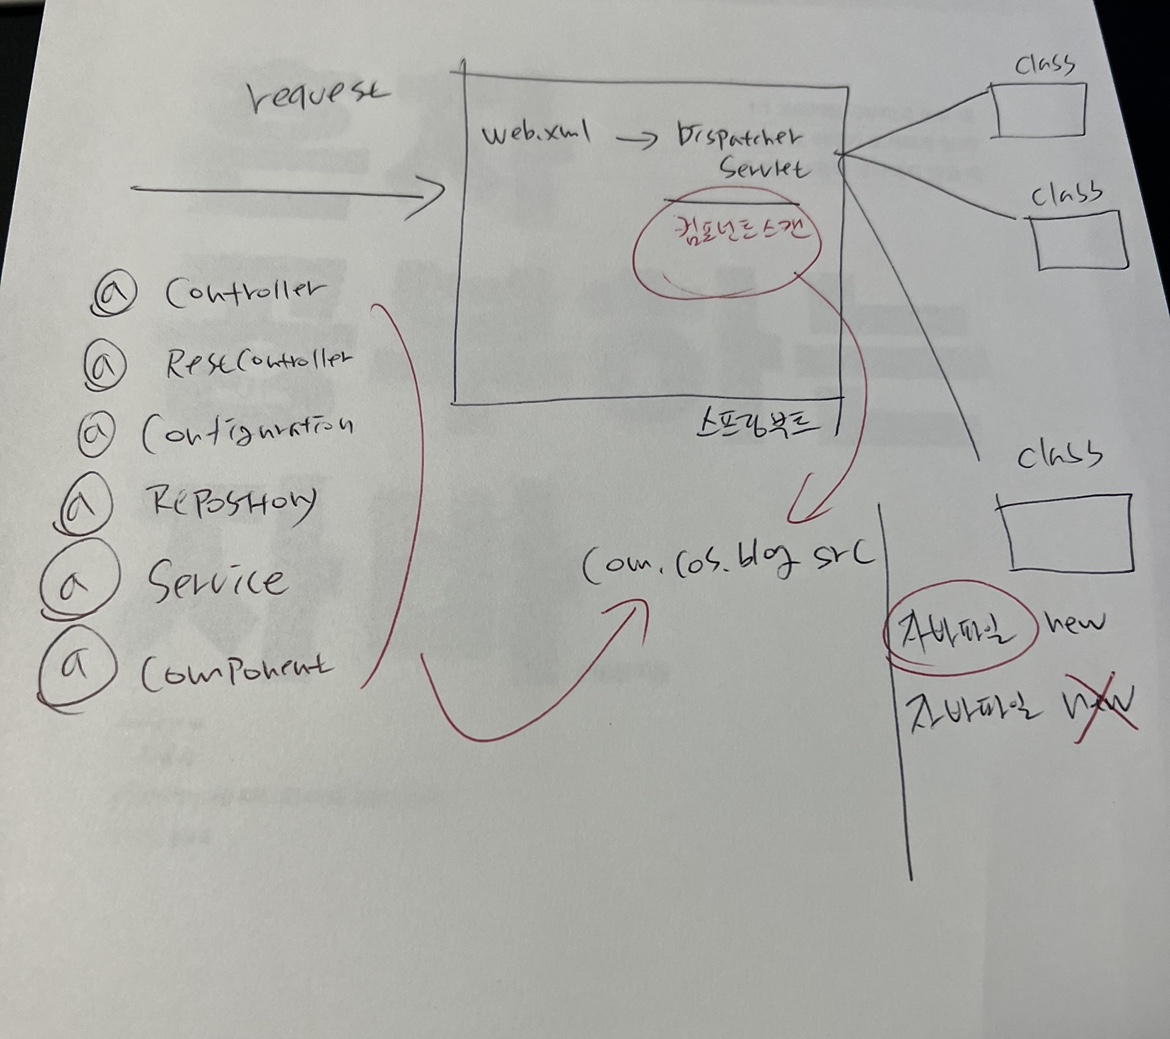 request
web.xml → Dispatcher
Servlet
컴포넌트스캔
스프링부트
class
class
class
@ Controller
@ RestController
@ Configuration
@ Repository
@ Service
@ Component
com.cos.blog src
자바파일 new
자바파일 new